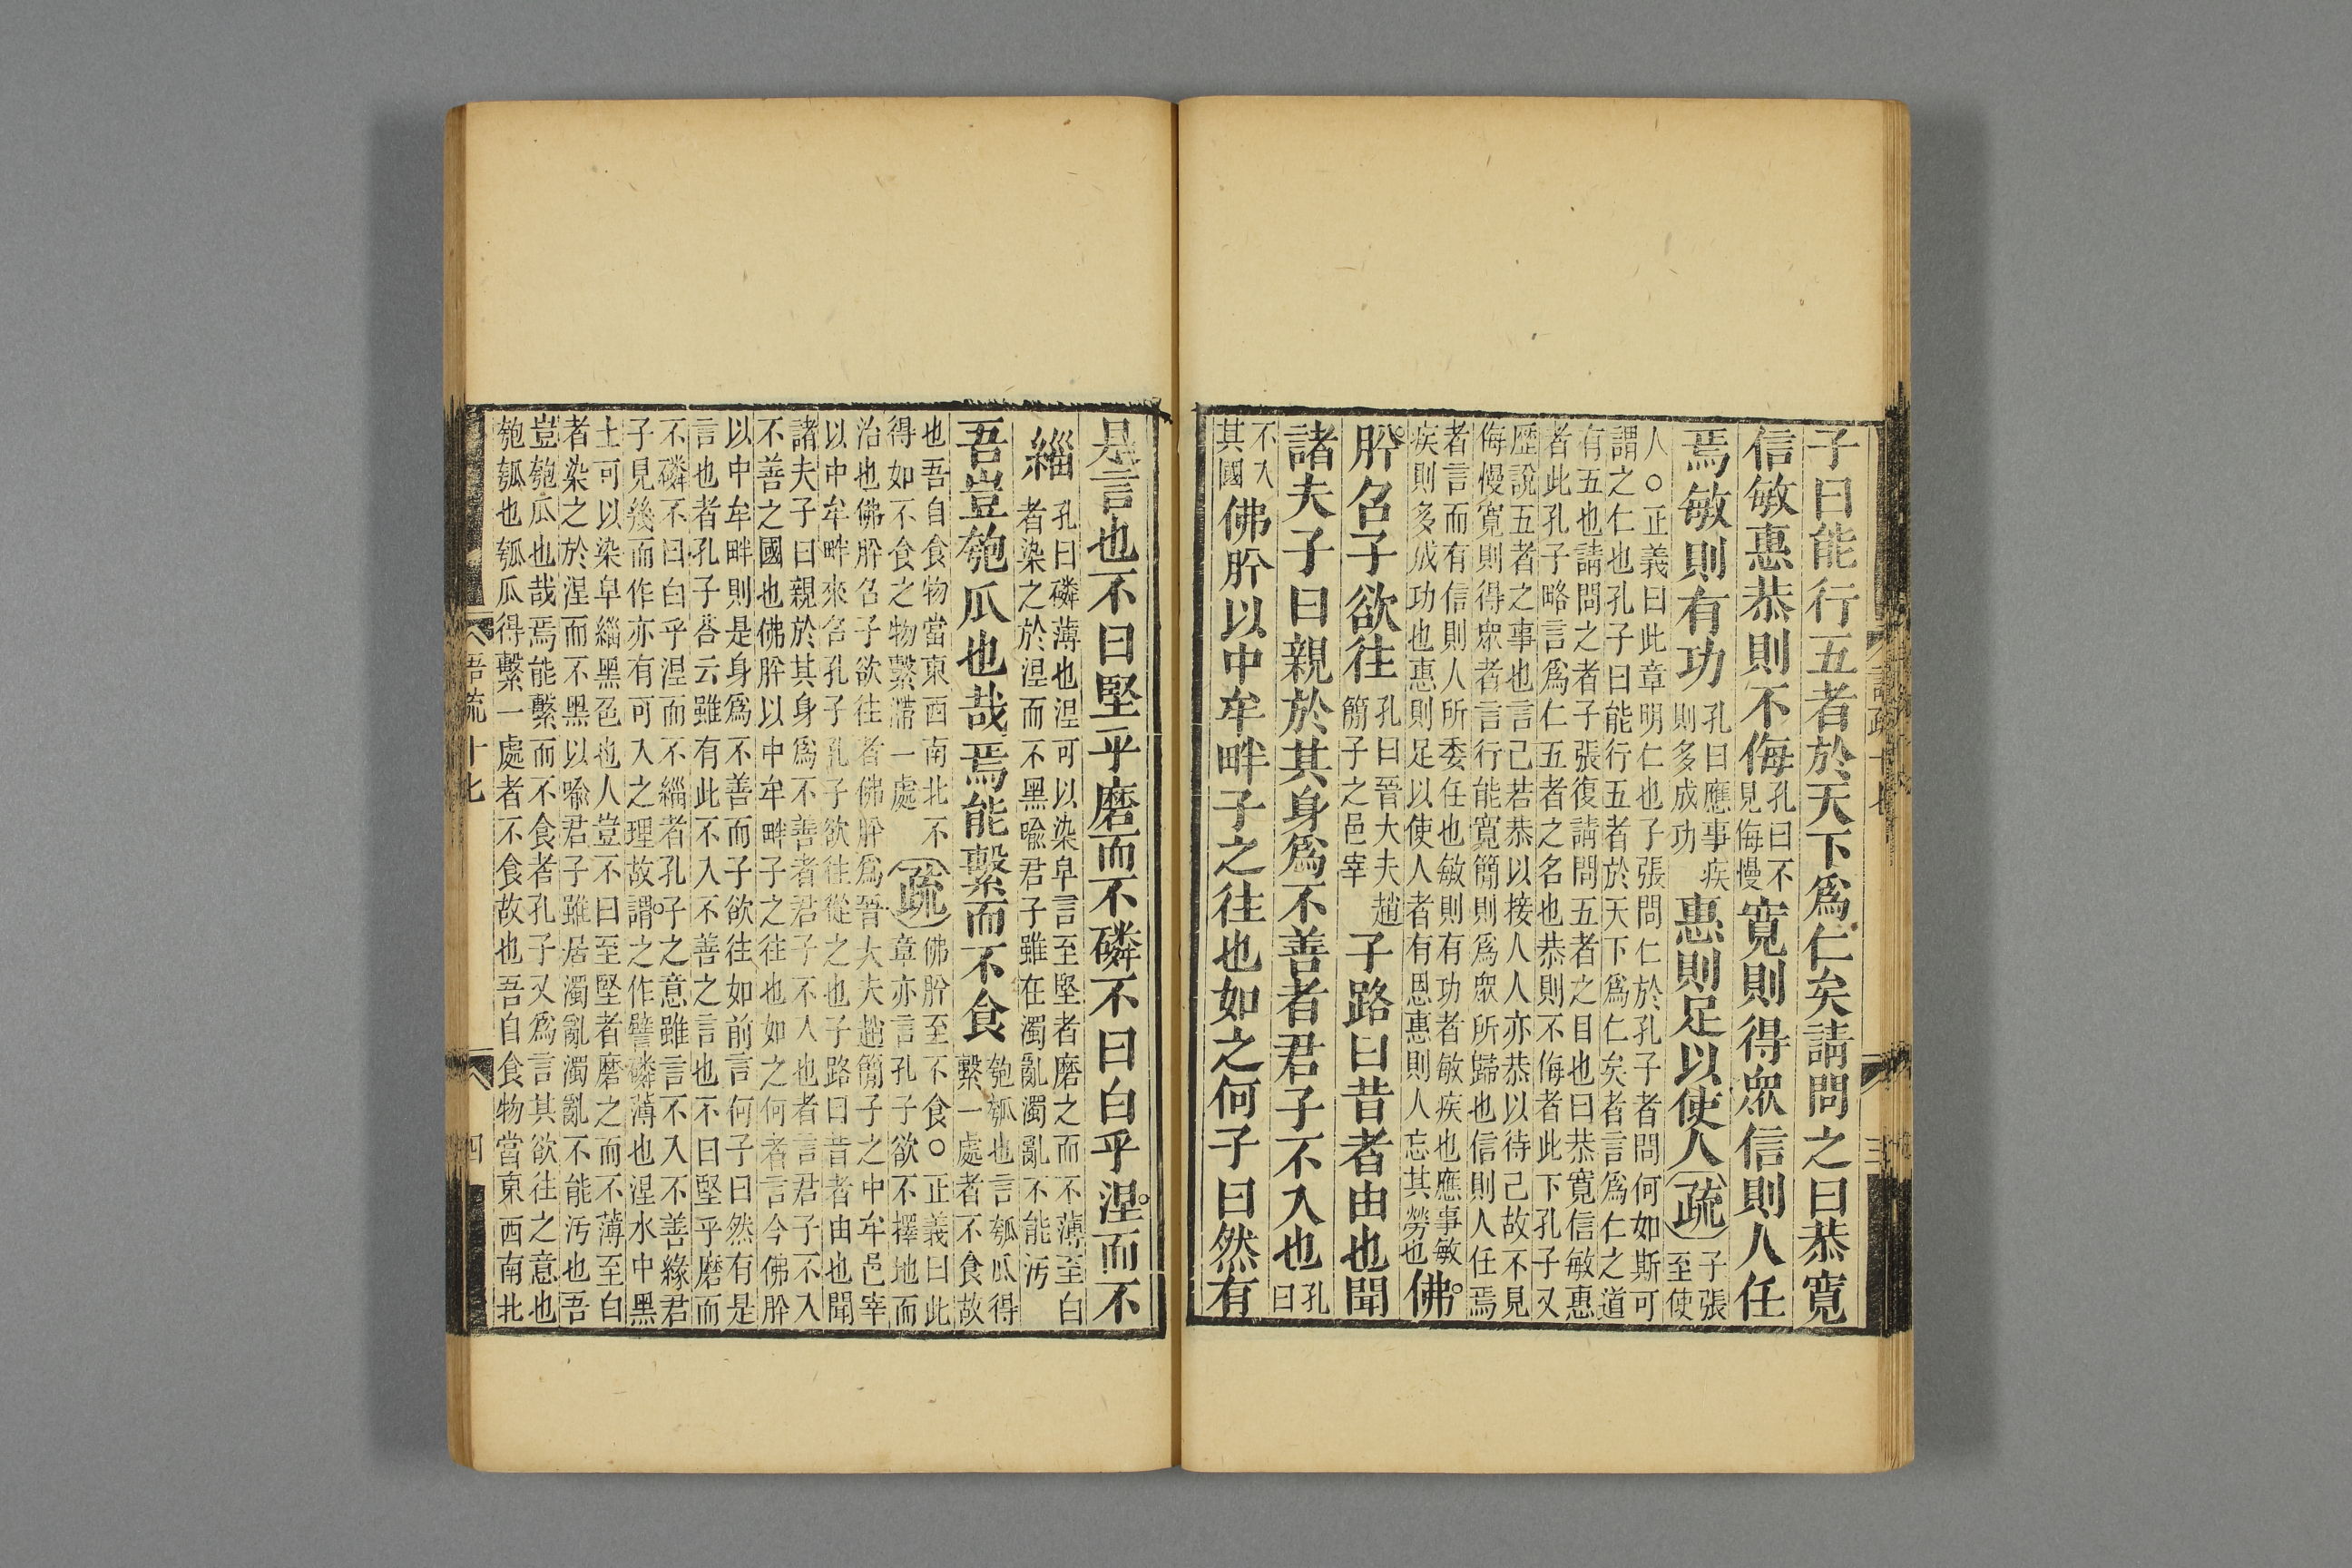 子曰能行五者於天下爲仁矣請問之曰恭寬
信敏惠恭則不侮孔曰不見侮慢寬則得衆信則人任
焉敏則有功孔曰應事疾則多成功惠則足以使人疏子張至使
人○正義曰此章明仁也子張問仁於孔子者問何如斯可
謂之仁也孔子曰能行五者於天下爲仁矣者言爲仁之道
有五也請問之者子張復請問五者之目也曰恭寬信敏惠
者此孔子略言爲仁五者之名也恭則不侮者此下孔子又
歷說五者之事也言己若恭以接人人亦恭以待己故不見
侮慢寬則得衆者言行能寬簡則爲衆所歸也信則人任焉
者言而有信則人所委任也敏則有功者敏疾也應事敏
疾則多成功也惠則足以使人者有恩惠則人忘其勞也佛
肸召子欲往孔曰晉大夫趙簡子之邑宰子路曰昔者由也聞
諸夫子曰親於其身爲不善者君子不入也孔曰
不入其國佛肸以中牟畔子之往也如之何子曰然有
語疏十七
三
是言也不曰堅乎磨而不磷不曰白乎涅而不
緇孔曰磷薄也涅可以染皁言至堅者磨之而不薄至白
者染之於涅而不黑喻君子雖在濁亂濁亂不能汚
吾豈匏瓜也哉焉能繫而不食匏瓠也言瓠瓜得繫一處者不食故
也吾自食物當東西南北不得如不食之物繫滯一處疏佛肸至不食○正義曰此章亦言孔子欲不擇地而
治也佛肸召子欲往者佛肸爲晉大夫趙簡子之中牟邑宰
以中牟畔來召孔子孔子欲往從之也子路曰昔者由也聞
諸夫子曰親於其身爲不善者君子不入也者言君子不入
不善之國也佛肸以中牟畔子之往也如之何者言今佛肸
以中牟畔則是身爲不善而子欲往如前言何子曰然有是
言也者孔子荅云雖有此不入不善之言也不曰堅乎磨而
不磷不曰白乎涅而不緇者孔子之意雖言不入不善緣君
子見幾而作亦有可入之理故謂之作譬磷薄也涅水中黑
土可以染皁緇黑色也人豈不曰至堅者磨之而不薄至白
者染之於涅而不黑以喻君子雖居濁亂濁亂不能汚也吾
豈匏瓜也哉焉能繫而不食者孔子又爲言其欲往之意也
匏瓠也瓠瓜得繫一處者不食故也吾自食物當東西南北
語疏十七
四